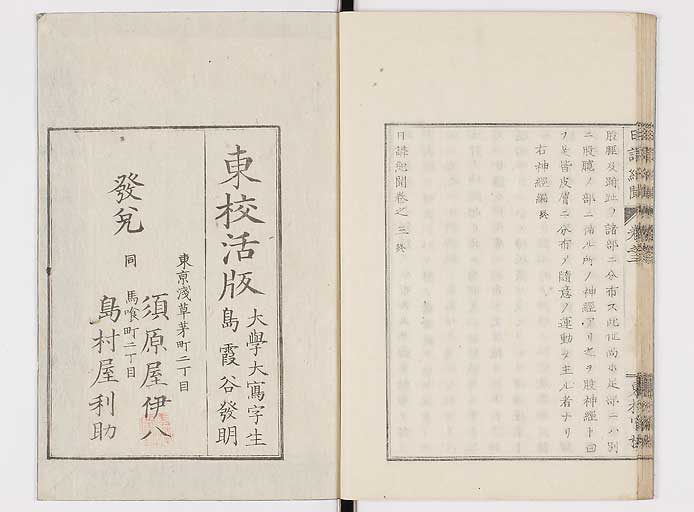 股脛及蹠趾ノ諸部ニ分布ス此他尚ホ足部ニハ別
ニ股臗ノ部ニ循ル所ノ神経アリ之ヲ股神経ト曰
フ是皆皮膚ニ分布ノ随意ノ運動ヲ主ル者ナリ
右神經編終
日講紀聞卷之三終
東校活版
大學大寫字生
島霞谷發明
東京淺草茅町二丁目
須原屋伊八
同馬喰町二丁目
島村屋利助
發兌